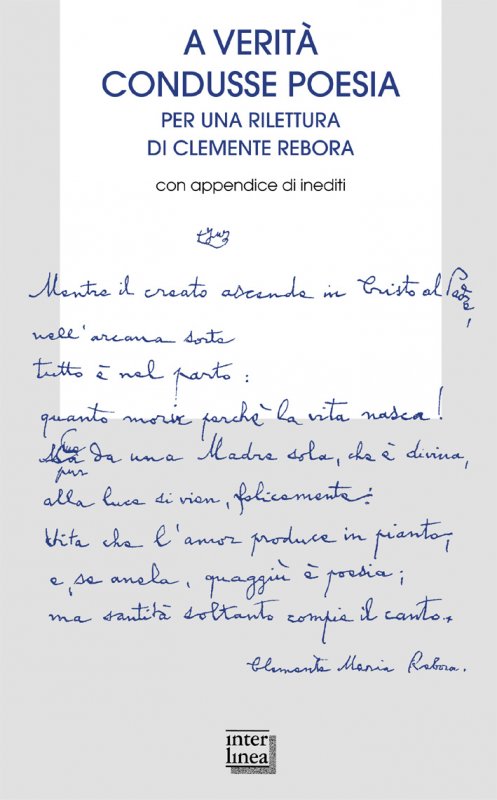 A VERITÀ
CONDUSSE POESIA
PER UNA RILETTURA
DI CLEMENTE REBORA
con appendice di inediti
Mentre il creato ascende in Cristo al Padre,
nell'arcana sorte
tutto è nel parto:
quanto morir perchè la vita nasca!
pur da una Madre sola, che è divina,
alla luce si vien, felicemente:
Vita che l'amor produce in pianto,
e, se anela, quaggiù è poesia;
ma santità soltanto compie il canto.
Clemente Maria Rebora.
inter
linea